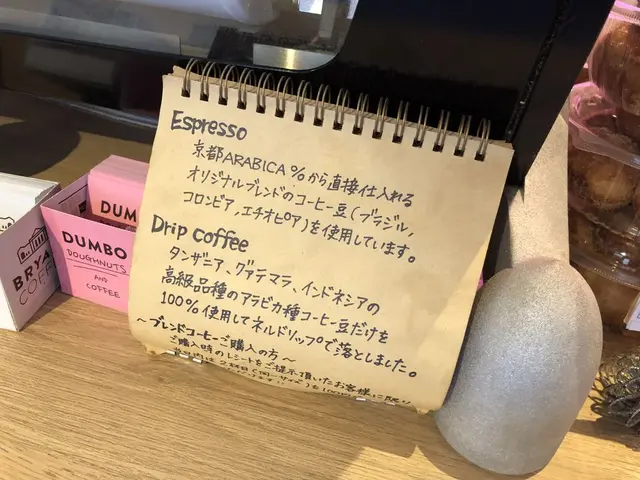 Espresso
京都ARABICA%から直接仕入れる
オリジナルブレンドのコーヒー豆(ブラジル,
コロンビア,エチオピア)を使用しています。
Drip coffee
タンザニア、グァテマラ、インドネシアの
高級品種のアラビカ種コーヒー豆だけを
100%使用してネルドリップで落としました。
〜ブレンドコーヒーご購入の方〜
ご購入時のレシートをご提示頂いたお客様に限り
DUM
DUMBO
DOUGHNUTS
AND
COFFEE
BRY
COFFE